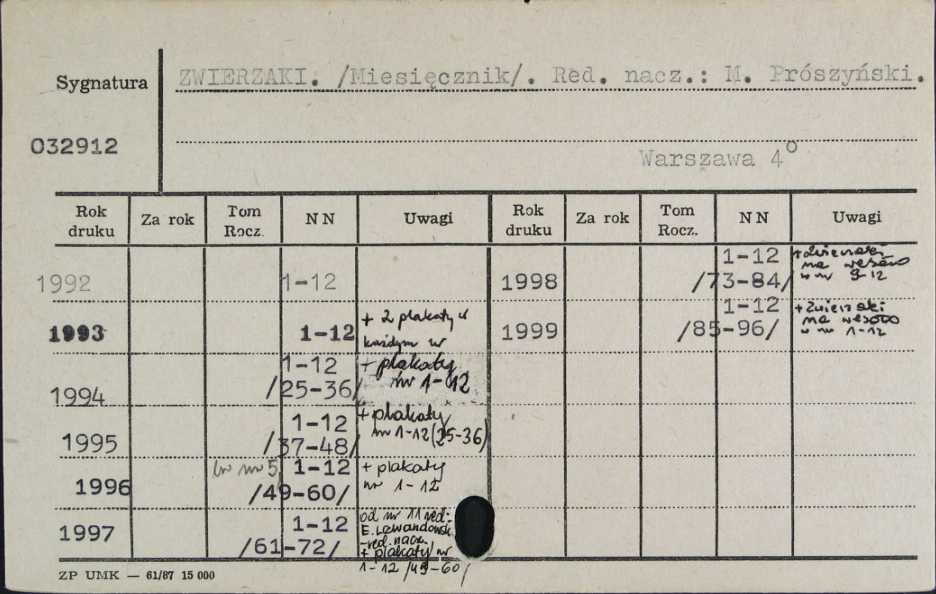 Sygnatura
ZWIERZAKI. /Miesięcznik/. Red. nacz.: M. Prószyński.
032912
Warszawa 4°
Rok druku Za rok Tom Rocz. NN Uwagi Rok druku Za rok Tom Rocz. NN Uwagi
1992 1-12
1998 1-12 /73-84/ na wesoło w nr 9-12
1993 1-12 + 2 plakaty w każdym nr
1999 1-12 /85-96/ na wesoło w nr 1-12
1994 1-12 /25-36/ + plakaty nr 1-12
1995 1-12 /37-48/ + plakaty nr 1-12 (25-36)
1996 w nr 5 1-12 /49-60/ + plakaty nr 1-12
1997 1-12 /61-72/ od nr 11 red: E. Lewandowsk. -red. nacz. + plakaty/ nr 1-12 /49-60/
ZP UMK — 61/87 15 000